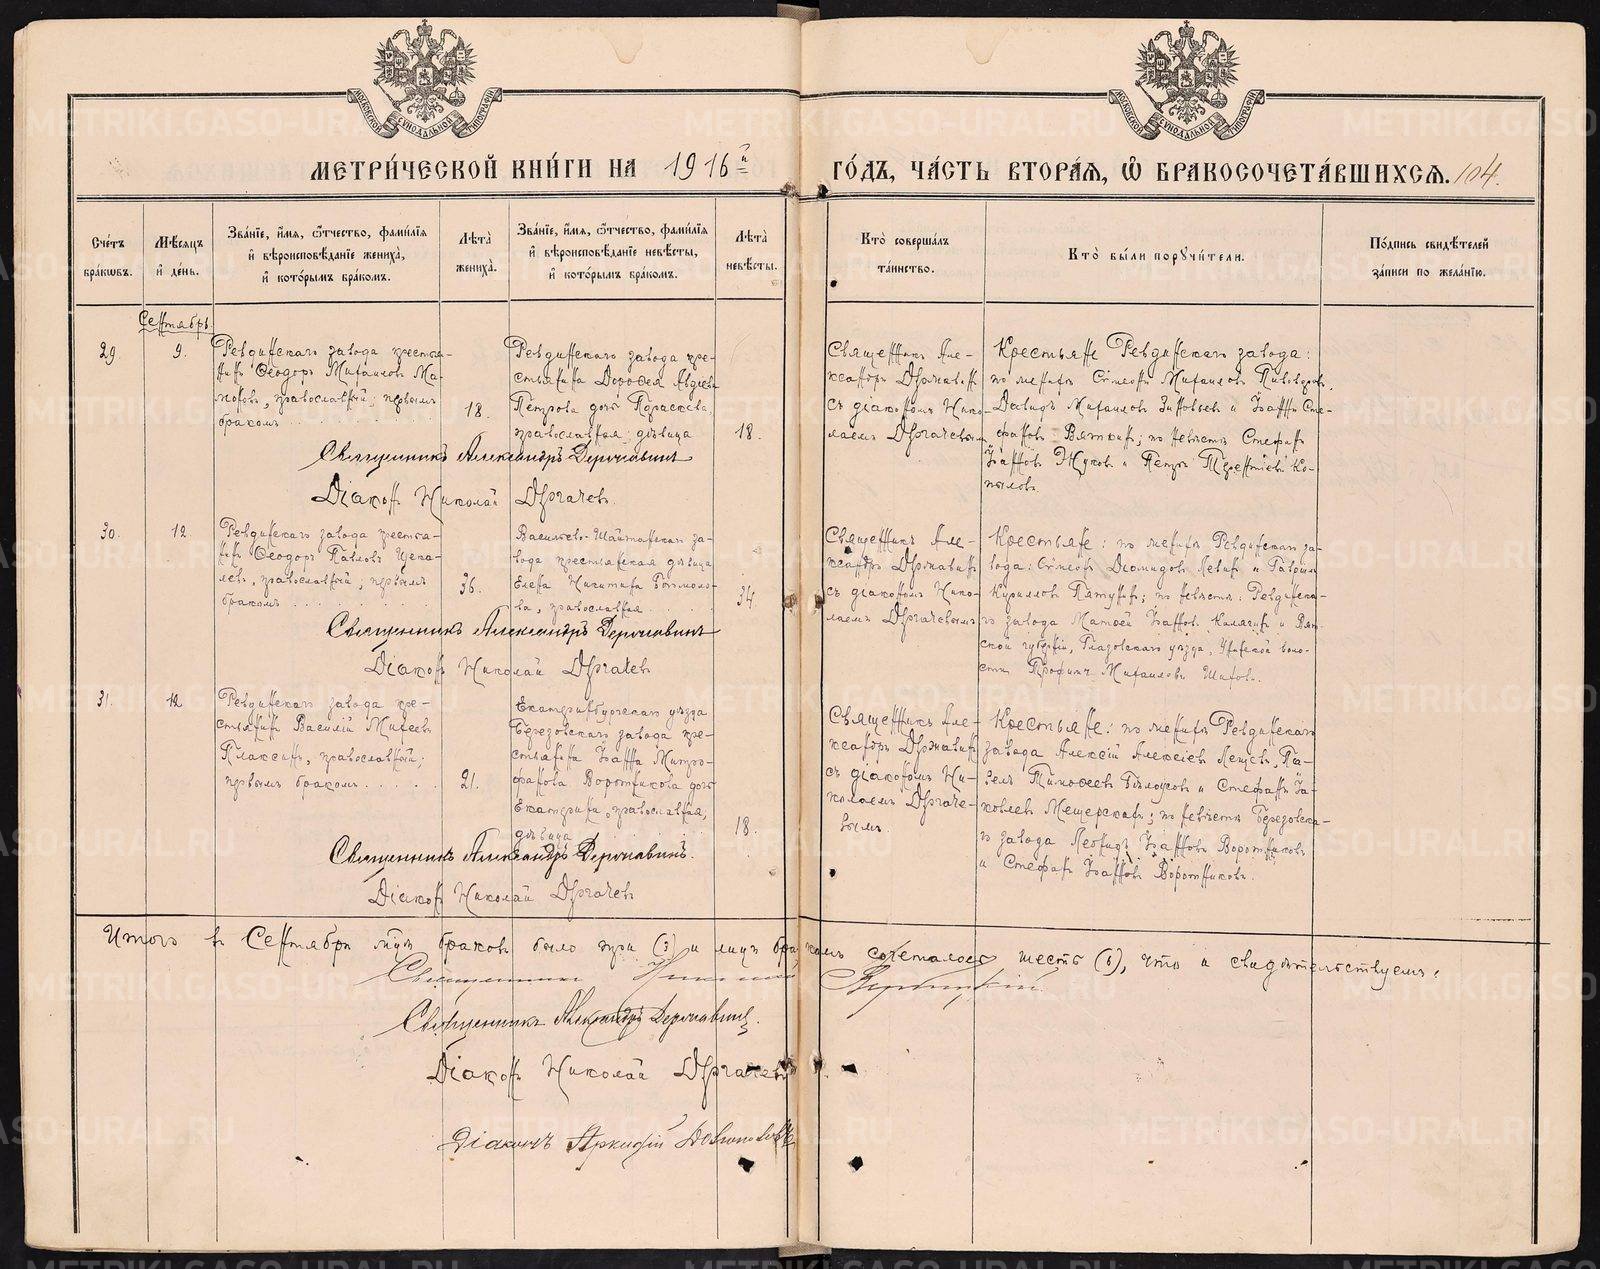 МОСКОВСКОЙ СѴНОДАЛЬНОЙ ТИПОГРАФІИ
МОСКОВСКОЙ СѴНОДАЛЬНОЙ ТИПОГРАФІИ
МЕТРИ́ЧЕСКОЙ КНИ́ГИ НА 1916й ГО́ДЪ, ЧА́СТЬ ВТОРА́Ѧ, Ѽ БРАКОСОЧЕТА́ВШИХСѦ. 104.
Сче́тъ бра́кѡвъ.
Мѣ́сяцъ и҆ де́нь.
Зва́нїе, и҆́мѧ, ѻ҆́тчество, фами́лїѧ и҆ вѣроисповѣ́данїе жениха̀, и҆ кото́рымъ бра́комъ.
Лѣта̀ жениха̀.
Зва́нїе, и҆́мѧ, ѻ҆́тчество, фами́лїѧ и҆ вѣроисповѣ́данїе невѣ́сты, и҆ кото́рымъ бра́комъ.
Лѣта̀ невѣ́сты.
Кто̀ соверша́лъ та́инство.
Кто̀ бы́ли порꙋчи́тели.
По́дпись свидѣ́телей за́писи по жела́нїю.
Сентябрь
29.
9.
Ревдинскаго завода крестья-
нинъ Ѳеодоръ Михаиловъ Ма-
моровъ, православный; первымъ
бракомъ
18.
Ревдинскаго завода кре-
стьянина Дороѳея Авдіева
Петрова дочь Параскева,
православная, дѣвица
18.
Священникъ Але-
ксандръ Державинъ
съ діакономъ Нико-
лаемъ Дергачевымъ
Крестьяне Ревдинскаго завода:
по женихѣ Сѵмеонъ Михаиловъ Пивоваровъ,
Давидъ Михаиловъ Зиновьевъ и Іоаннъ Сте-
фановъ Вяткинъ; по невѣстѣ Стефанъ
Іоанновъ Жуковъ и Петръ Терентіевъ Ко-
пыловъ
Священникъ Александръ Державинъ
Діаконъ Николай Дергачевъ.
30.
12
Ревдинскаго завода крестья-
нинъ Ѳеодоръ Павловъ Цека-
левъ, православный; первымъ
бракомъ
36.
Васильево-Шайтанскаго за-
вода крестьянская дѣвица
Елена Никитина Богомоло-
ва, православная
34
Священникъ Але-
ксандръ Державинъ
съ діакономъ Нико-
лаемъ Дергачевымъ
Крестьяне: по женихѣ Ревдинскаго за-
вода: Сѵмеонъ Діомидовъ Левинъ и Гавріилъ
Кирилловъ Пятунинъ; по невѣстѣ: Ревдинска-
го завода Матѳей Іоанновъ Калягинъ и Вят-
ской губерніи, Глазовскаго уѣзда, Унинской воло-
сти Трофимъ Михаиловъ Шиховъ.
Священникъ Александръ Державинъ
Діаконъ Николай Дергачевъ
31.
12
Ревдинскаго завода кре-
стьянинъ Василій Михеевъ
Плаксинъ, православный;
первымъ бракомъ
21.
Екатеринбургскаго уѣзда
Березовскаго завода кре-
стьянина Іоанна Митро-
фанова Воротникова дочь
Екатерина, православная,
дѣвица
18.
Священникъ Але-
ксандръ Державинъ
съ діакономъ Ни-
колаемъ Дергаче-
вымъ.
Крестьяне: по женихѣ Ревдинскаго
завода Алексій Алексіевъ Лещевъ, Па-
велъ Тимоѳеевъ Бѣлоусовъ и Стефанъ Іа-
ковлевъ Мещерскихъ; по невѣстѣ Березовска-
го завода Леонидъ Іоанновъ Воротниковъ
и Стефанъ Іоанновъ Воротниковъ.
Священникъ Александръ Державинъ.
Діаконъ Николай Дергачевъ
Итого въ Сентябрѣ мѣс. браковъ было три (3) и лицъ бракомъ сочеталось шесть (6), что и свидѣтельствуемъ:
Священникъ
Священникъ Александръ Державинъ.
Діаконъ Николай Дергачевъ
Діаконъ Аркадій
METRIKI.GASO-URAL.RU